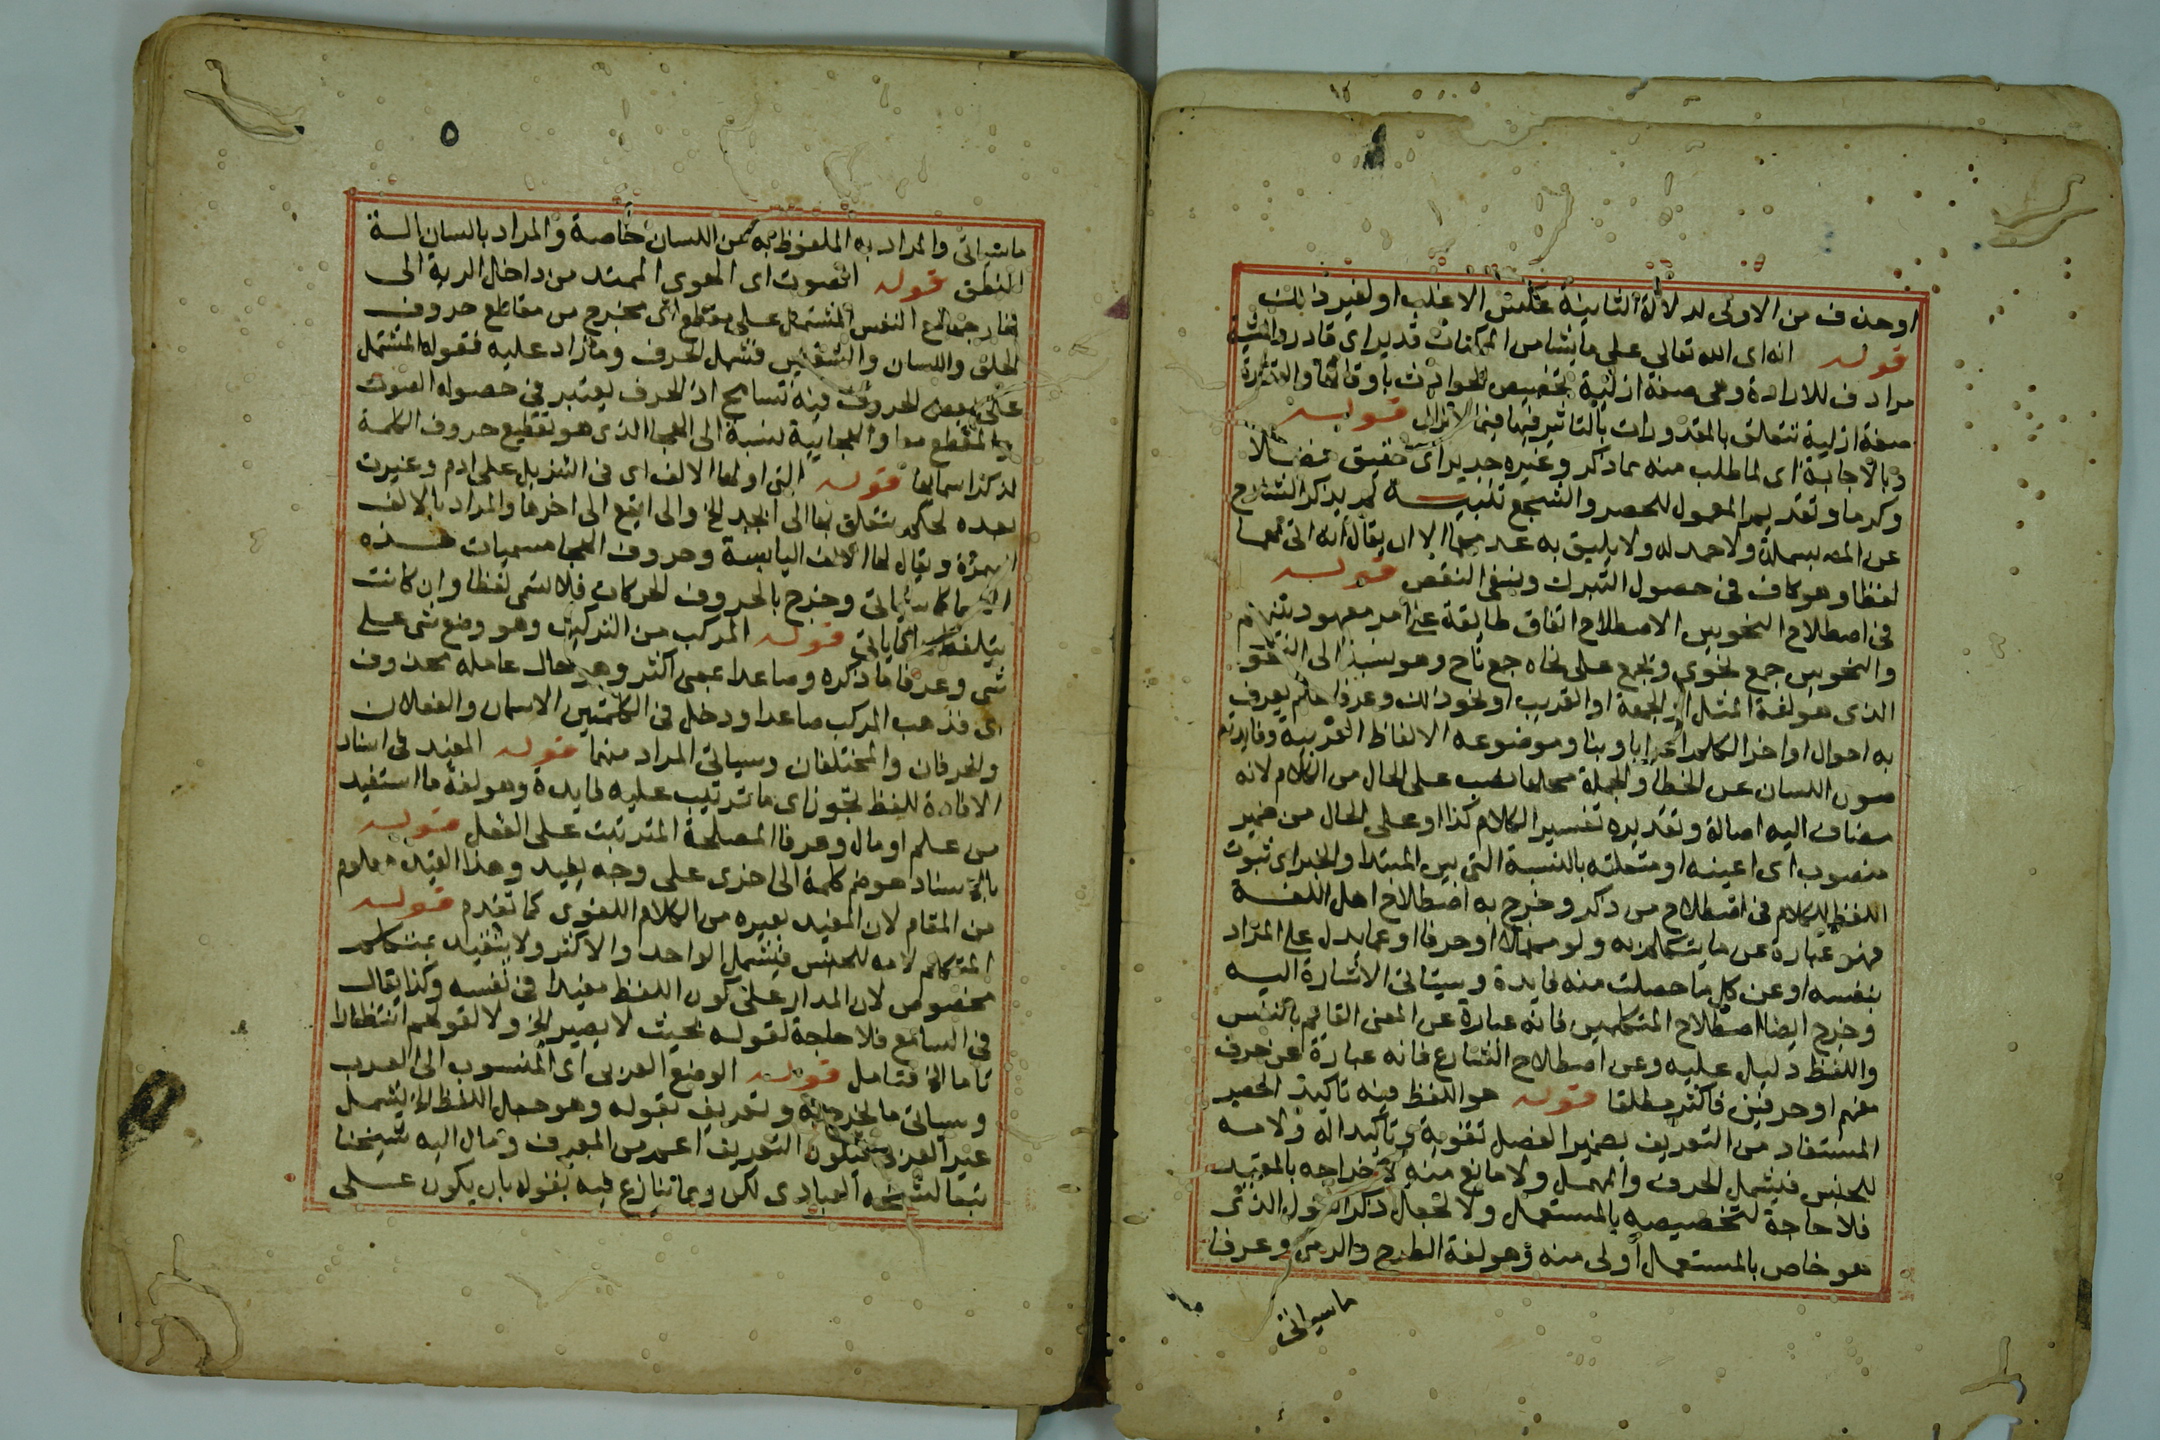 او حذف من الاولى لدلالة الثانية عكس الاغلب او لغير ذلك
قوله انه اى الله تعالى على ما يشا من الممكنات قدير اى قادر والمشية
مرادف للارادة وهى صفة ازلية تخصيص الحوادث باوقاتها والقدرة
صفة ازلية تتعلق بالمقدورات بالتاثير فيها فيما لا يزال قوله
وبالاجابة اى لما طلب منه مما ذكر وغيره جدير اى حقيق فضلا
وكرما وتقديم المعمول للحصر والسجع تنبيه لم يذكر الشارح
عن المص بسملة ولا حمدله ولا يليق به عدمهما الا ان يقال انه اتى بهما
لفظا وهو كاف فى حصول التبرك وينفى النقص قوله
فى اصطلاح النحويين الاصطلاح اتفاق طايفة على امر معهود بينهم
والنحويين جمع نحوى ويجمع على نحاه جمع ناح وهو نسبة الى النحو
الذى هو لغة المثل او الجهة او القريب او نحو ذلك وعرفا علم يعرف
به احوال اواخر الكلم اعرابا وبنا وموضوعه الالفاظ العربية وفايدته
صون اللسان عن الخطا والجملة محلها نصب على الحال من الكلام لانه
مضاف اليه اصالة وتقديره تفسير الكلام كذا او على الحال من ضمير
منصوب اى اعينه او متعلقه بالنسبة التى بين المبتدا والخبر اى ثبوت
اللفظ للكلام فى اصطلاح من ذكر وخرج به اصطلاح اهل اللغة
فهو عبارة عن ما يتكلم به ولو مهملا او حرفا او عما يدل على المراد
بنفسه او عن كل ما حصلت منه فايدة وسياتى الاشارة اليه
وخرج ايضا اصطلاح المتكلمين فانه عبارة عن المعنى القايم بالنفس
واللفظ دليل عليه وعن اصطلاح الشارع فانه عبارة عن حرف
مفهم او حرفين فاكثر مطلقا قوله هو اللفظ فيه تاكيد الحصر
المستفاد من التعريف بضمير الفصل تقوية وتاكيدا له ولامه
للجنس فيشمل الحرف والمهمل ولا مانع منه لاخراجه بالمفيد
فلا حاجة لتخصيصه بالمستعمل ولا لجعل ذكر القول الذى
هو خاص بالمستعمل اولى منه وهو لغة الطرح والرمى وعرفا
ما سياتى
٥
ما سياتى والمراد به الملفوظ به من اللسان خاصة والمراد بالسان الة
النطق قوله الصوت اى الهوى الممتد من داخل الرية الى
خارجها مع النفس المشتمل على مقطع اى مخرج من مقاطع حروف
الحلق واللسان والشفتين فشمل الحرف وما زاد عليه فقوله المشتمل
على بعض الحروف فيه تسامح اذ الحرف يعتبر فى حصوله الصوت
والمقطع معا والهجاييه نسبة الى الهجا الذى هو تقطيع حروف الكلمة
لذكر اسمايها قوله التى اولها الالف اى فى التنزيل على ادم وغيرت
بعده لحكم تتعلق بها الى ابجد الخ والى ايقغ الى اخرها والمراد بالالف
الهمزة ويقال لها الالف اليابسة وحروف الهجا مسميات هذه
الاسما كما سياتى وخرج بالحروف الحركات فلا تسمى لفظا وان كانت
يتلفظ بها كما ياتى قوله المركب من التركيب وهو وضع شى على
شى وعرفا ما ذكره وصاعدا بمعنى اكثر وهو حال عامله محذوف
اى فذهب المركب صاعدا ودخل فى الكلمتين الاسمان والفعلان
والحرفان والمختلفان وسياتى المراد منهما قوله المفيد فى اسناد
الافادة للفظ تجوز اى ما ترتب عليه فايدة وهو لغة ما استفيد
من علم او مال وعرفا المصلحة المترتبت على الفعل قوله
بالاسناد هو ضم كلمة الى اخرى على وجه يفيد وهذا القيد معلوم
من المقام لان المفيد بغيره من الكلام اللغوى كما تقدم قوله
المتكلم لامه للجنس فيشمل الواحد والاكثر ولا يتقيد بمتكلم
مخصوص لان المدار على كون اللفظ مفيدا فى نفسه وكذا يقال
فى السامع فلا حاجة لقوله بحيث لا يصير الخ ولا لقولهم انتظارا
تاما الخ فتامل قوله الوضع العربى اى المنسوب الى العرب
وسياتى ما يخرج به وتعريفه بقوله وهو جعل اللفظ الخ يشمل
غير العربى فيكون التعريف اعم من المعرف ومال اليه شيخنا
تبعا لشيخه العبادى لكن ربما ينازع فيه بقوله بان يكون على